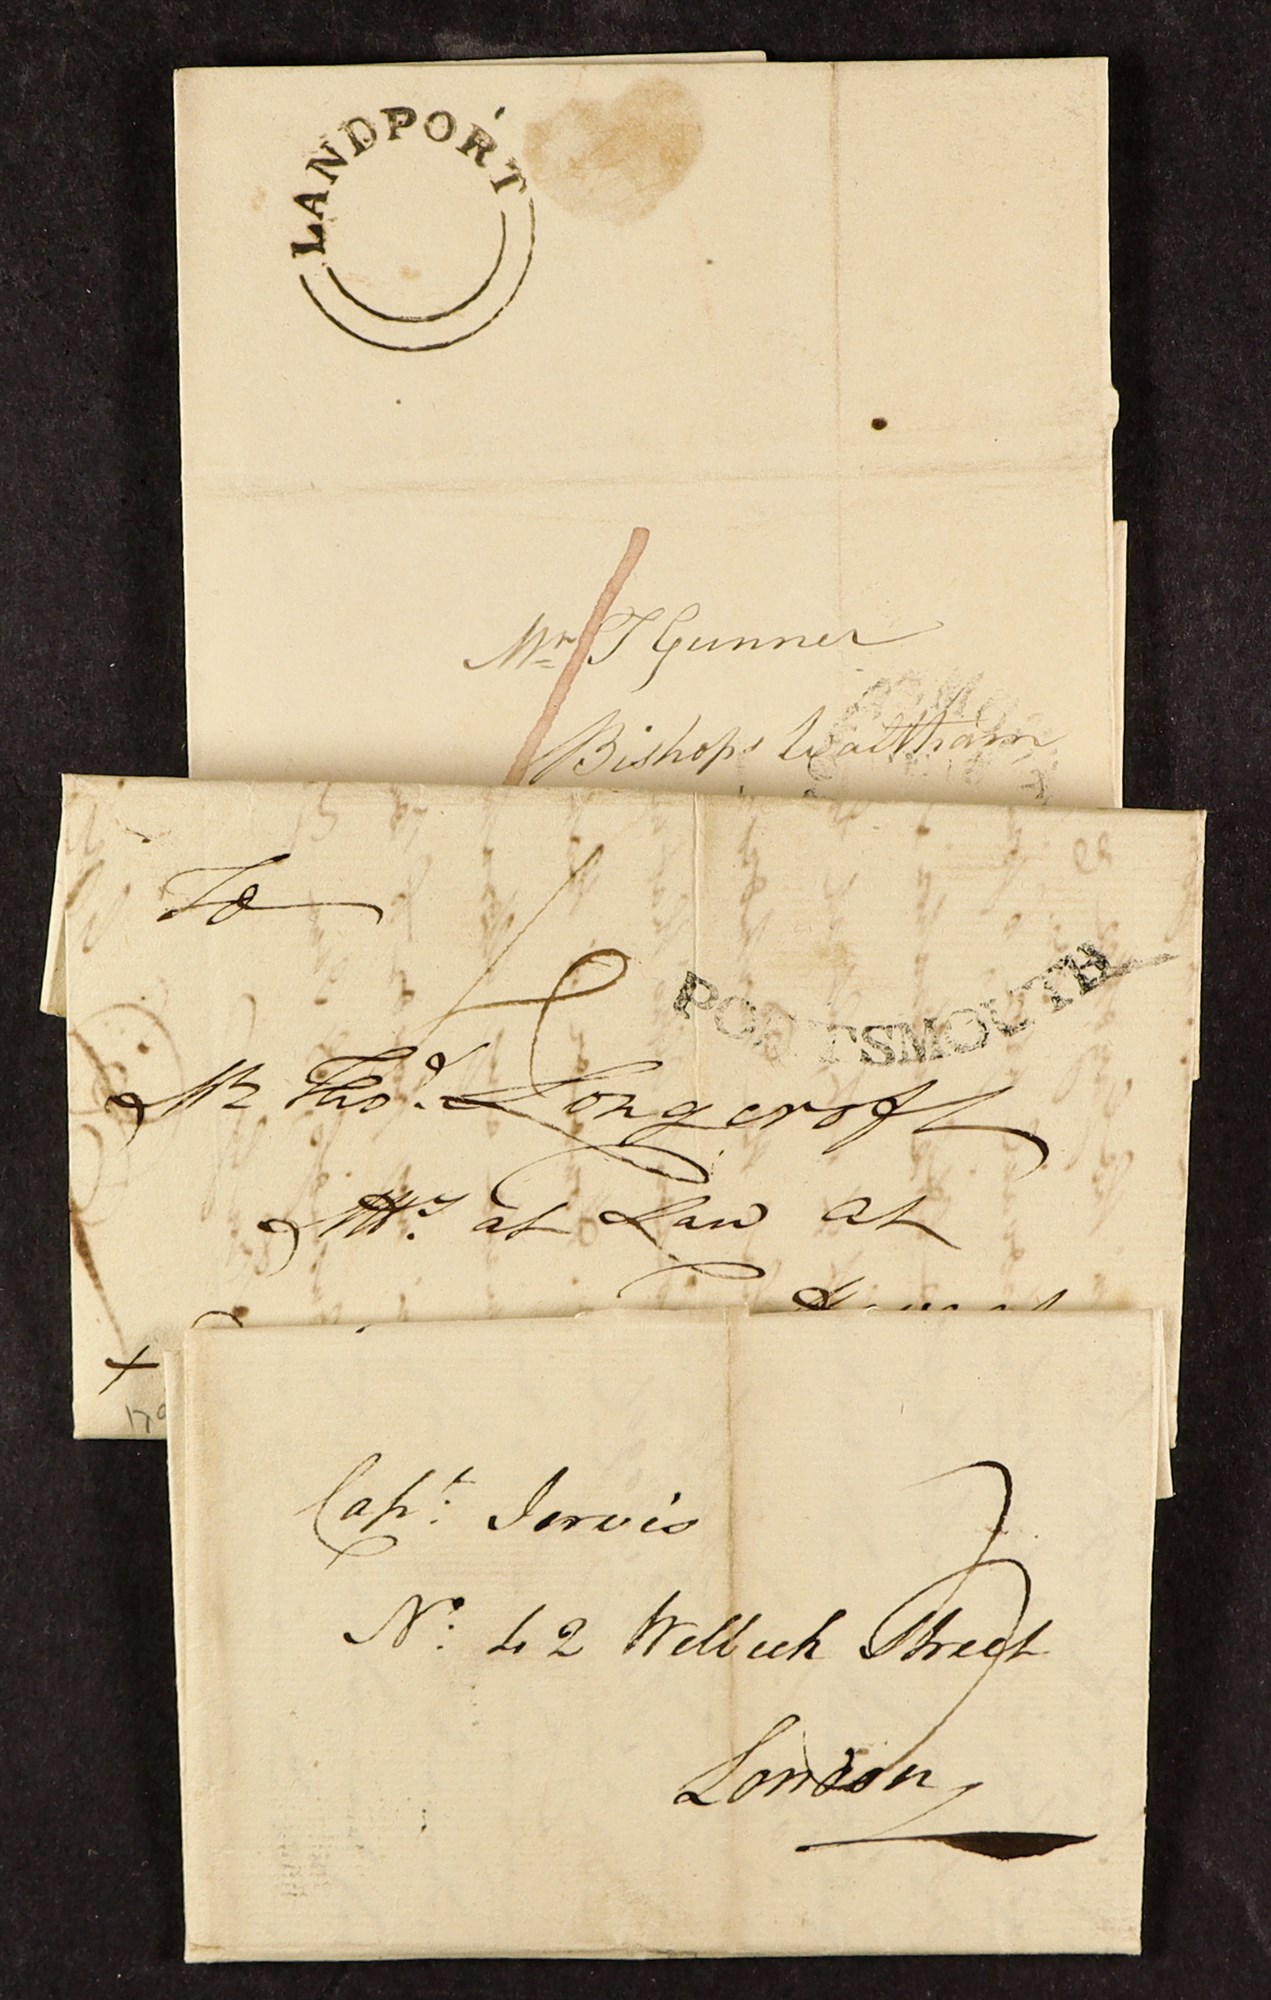 LANDPORT
Mr T Gunner
Bishops Waltham
To
PORTSMOUTH
Mr Thos. Longcroft
Atty. at Law at
Capt. Jervis
No. 42 Welbeck Street
London